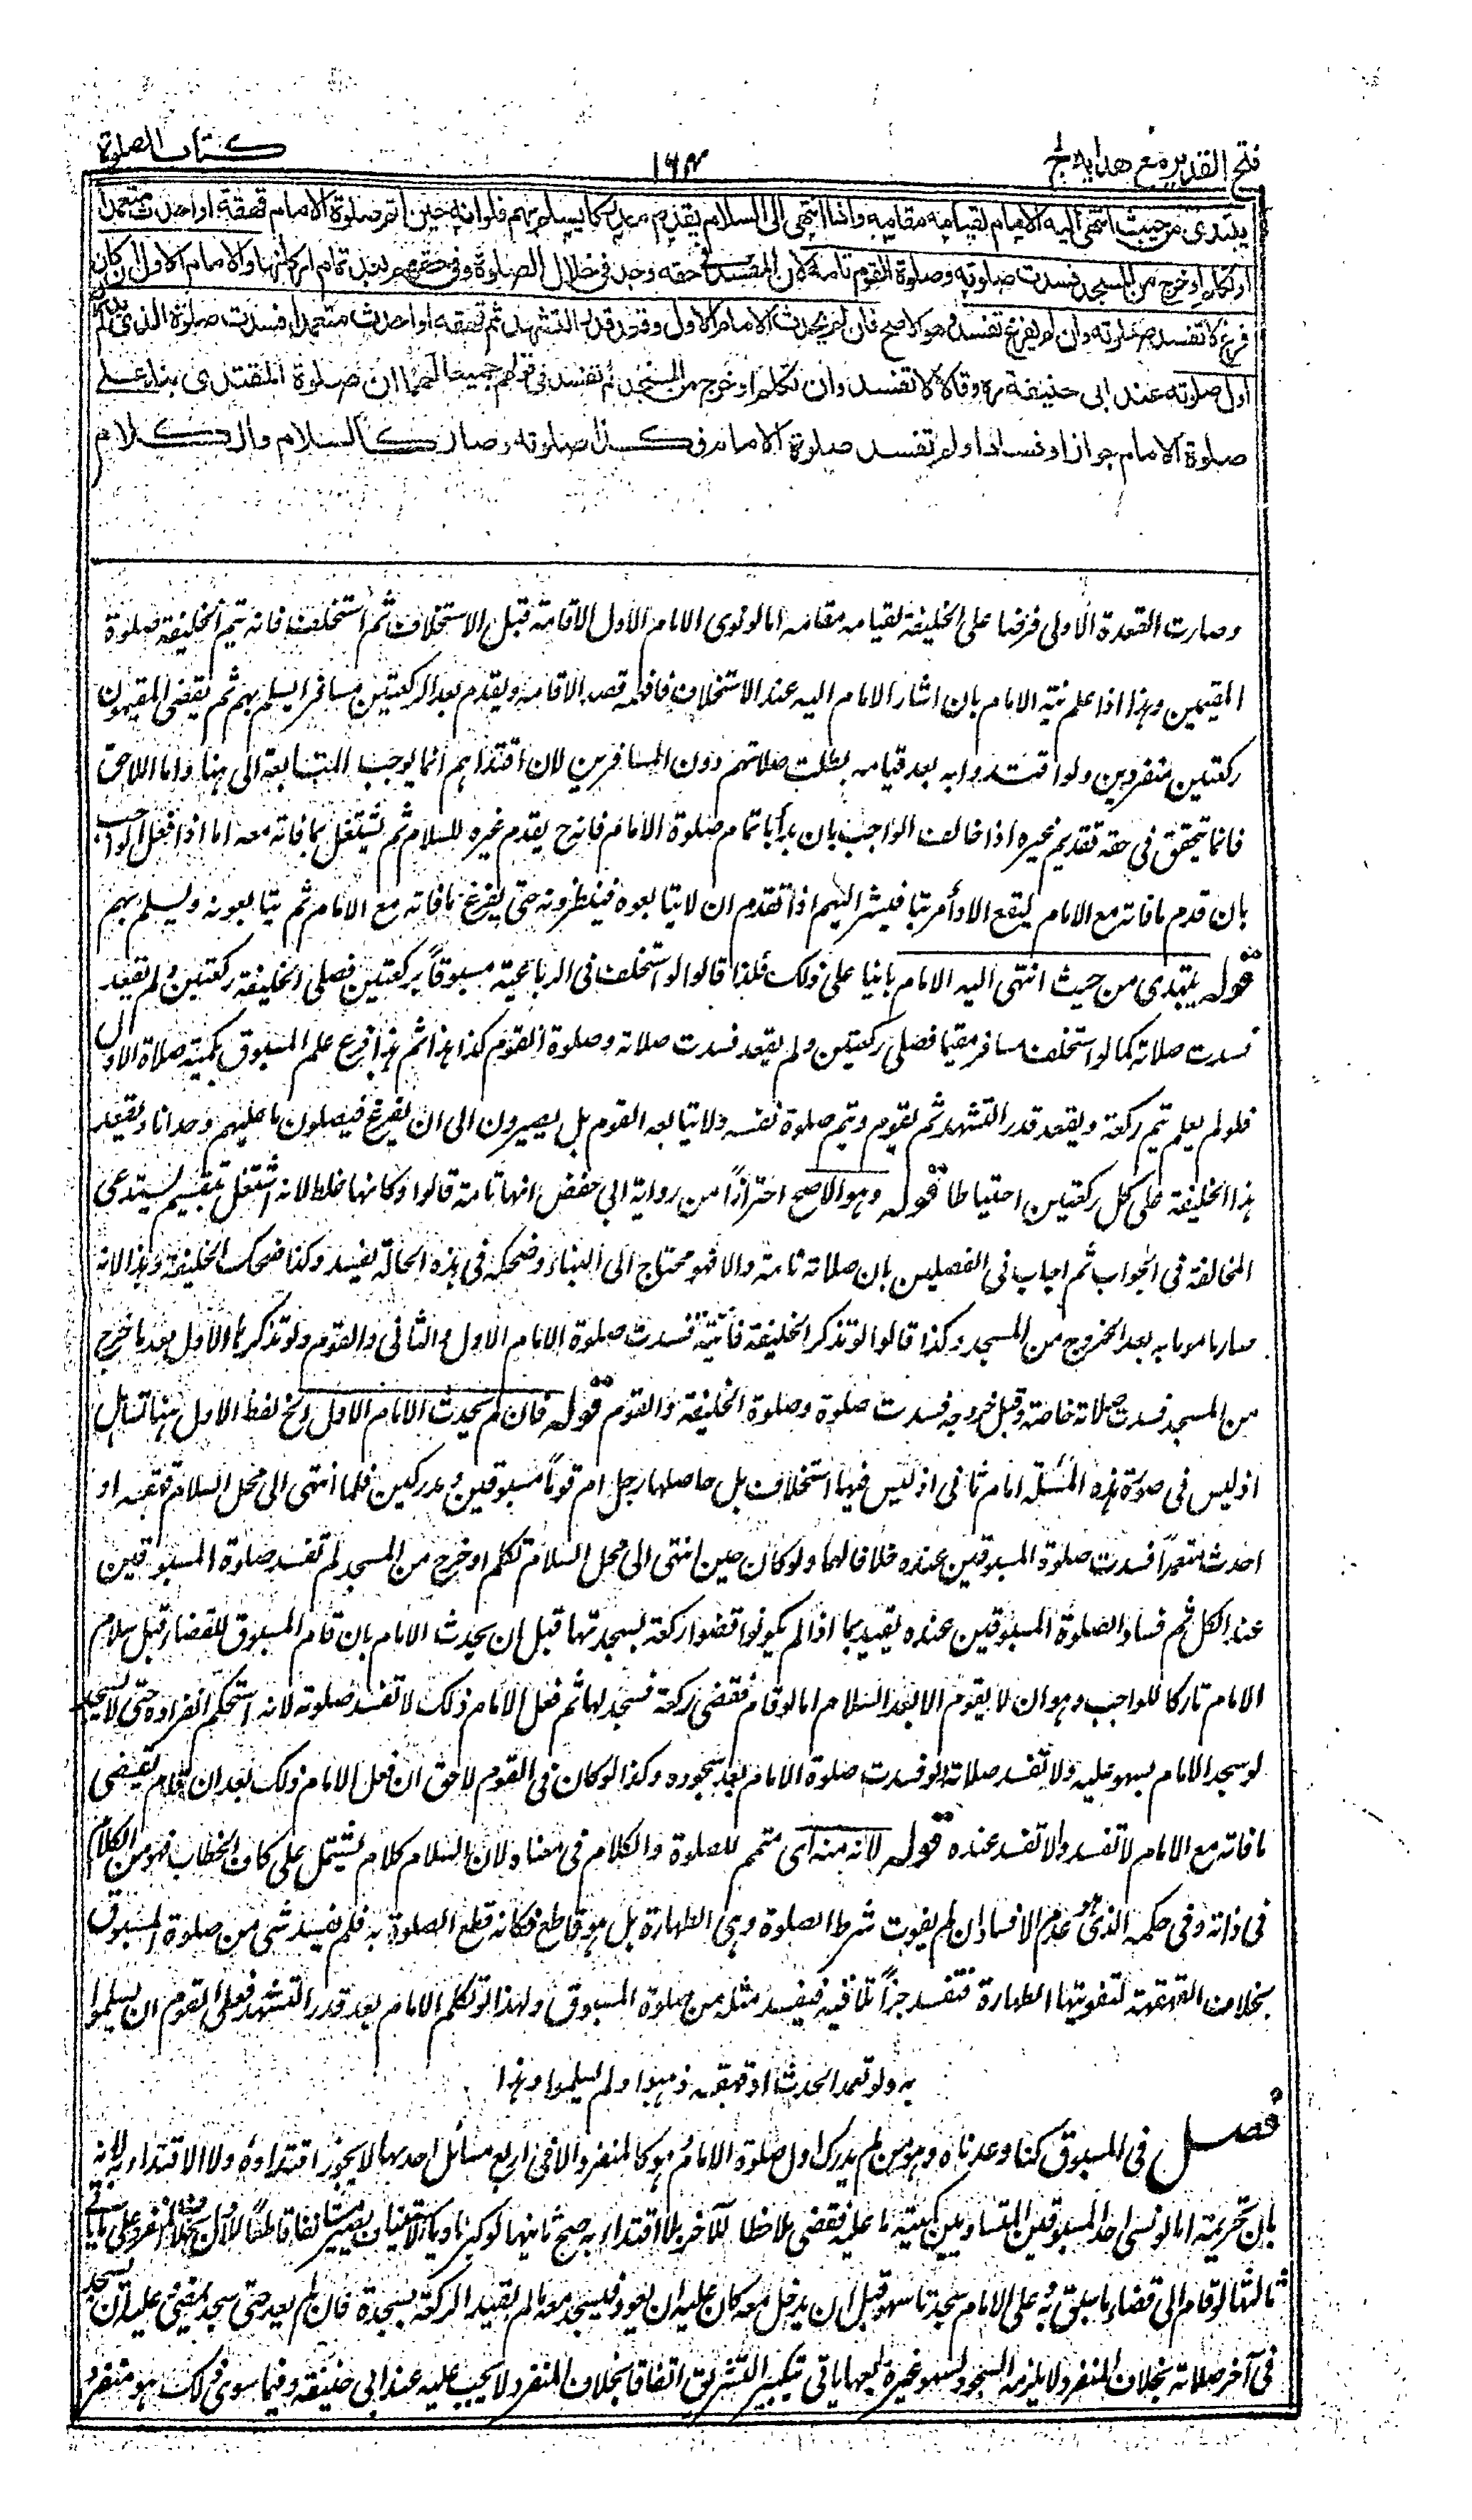 فتح القدير مع هدايه ج
١٦٣
كتاب الصلوة
يبتدى من حيث انتهى اليه الامام لقيامه مقامه واذا انتهى الى السلام يقدم مدركا يسلم بهم فلو انه حين اتم صلوة الامام قهقه او احدث متعمدا
او تكلم او خرج من المسجد فسدت صلوته وصلوة القوم تامة لان المفسد فى حقه وجد فى خلال الصلوة وفى حقهم بعد تمام اركانها والامام الاول ان كان
فرغ لا تفسد صلوته وان لم يفرغ تفسد وهو الاصح فان لم يحدث الامام الاول وقعد قدر التشهد ثم قهقه او احدث متعمدا فسدت صلوة الذى لم يدرك
اول صلوته عند ابى حنيفة ره وقالا لا تفسد وان تكلم او خرج من المسجد لم تفسد فى قولهم جميعا لهما ان صلوة المقتدى بناء على
صلوة الامام جوازا وفسادا ولم تفسد صلوة الامام فكذا صلوته وصار كالسلام والكلام
وصارت القعدة الاولى فرضا على الخليفة لقيامه مقامه اما لو نوى الامام الاول الاقامة قبل الاستخلاف ثم استخلف فانه يتم الخليفة صلوة
المقيمين وهذا اذا علم نية الامام بان اشار الامام اليه عند الاستخلاف فافهمه قصد الاقامة ويقدم بعد الركعتين مسافرا يسلم بهم ثم يقضى المقيمون
ركعتين منفردين ولو اقتدوا به بعد قيامه بطلت صلاتهم دون المسافرين لان اقتداهم انما يوجب المتابعة الى هنا واما اللاحق
فانما يتحقق فى حقه تقديم غيره اذا خالف الواجب بان بدأ باتمام صلوة الامام فانه ح يقدم غيره للسلام ثم يشتغل بما فاته معه اما اذا فعل الواجب
بان قدم ما فاته مع الامام ليقع الادأ مرتبا فليشر اليهم اذا تقدم ان لا يتابعوه فينظرونه حتى يفرغ ما فاته مع الامام ثم يتابعونه ويسلم بهم
قوله يبتدى من حيث انتهى اليه الامام بانيا على ذلك فلذا قالوا لو استخلف فى الرباعية مسبوقاً بركعتين فصلى الخليفة ركعتين ولم يقعد
فسدت صلاته كما لو استخلف مسافر مقيما فصلى ركعتين ولم يقعد فسدت صلاته وصلوة القوم كذا هذا ثم هذا فرع علم المسبوق بكمية صلاة الاول
فلو لم يعلم يتم ركعة ويقعد قدر التشهد ثم يقوم ويتم صلوة نفسه ولا يتابعه القوم بل يصبرون الى ان يفرغ فيصلون ما عليهم وحدانا ويقعد
هذا الخليفة على كل ركعتين احتياطا قوله وهو الاصح احترازاً من رواية ابى حفص انها تامة قالوا وكانها غلط لانه اشتغل بتقسيم يستدعى
المخالفة فى الجواب ثم اجاب فى الفصلين بان صلاته تامة والا فهو محتاج الى البناء وضحكه فى هذه الحالة يفسد وكذا ضحك الخليفة وهذا لانه
صار ماموما به بعد الخروج من المسجد وكذا قالوا لو تذكر الخليفة فائتة فسدت صلوة الامام الاول والثانى والقوم ولو تذكرها الاول بعد ما خرج
من المسجد فسدت صلاته خاصة وقبل خروجه فسدت صلوة وصلوة الخليفة والقوم قوله فان لم يحدث الامام الاول الخ لفظ الاول هنا تساهل
اذ ليس فى صورة هذه المسئلة امام ثانى اذ ليس فيها استخلاف بل حاصلها رجل ام قوماً مسبوقين ومدركين فلما انتهى الى محل السلام قهقه او
احدث متعمداً فسدت صلوة المسبوقين عنده خلافا لهما ولو كان حين انتهى الى محل السلام تكلم او خرج من المسجد لم تفسد صلوة المسبوقين
عند الكل ثم فساد الصلوة المسبوقين عنده يقيد بما اذا لم يكونوا قضوا ركعة بسجدتها قبل ان يحدث الامام بان قام المسبوق للقضاء قبل سلام
الامام تاركا للواجب وهو ان لا يقوم الا بعد السلام اما لو قام فقضى ركعة فسجد لها ثم فعل الامام ذلك لا تفسد صلوته لانه استحكم انفراده حتى لا يسجد
لو سجد الامام لسهو عليه ولا تفسد صلاته لو فسدت صلوة الامام بعد سجوده وكذا لو كان فى القوم لاحق ان فعل الامام ذلك بعد ان قام يقضى
ما فاته مع الامام لا تفسد والا تفسد عنده قوله لانه منه اى متمم للصلوة والكلام فى معناه لان السلام كلام يشتمل على كاف الخطاب فهو من الكلام
فى ذاته وفى حكمه الذى هو عدم الافساد ان لم يفوت شرط الصلوة وهى الطهارة بل هو قاطع فكانه قطع الصلوة به فلم يفسد شى من صلوة المسبوق
بخلاف القهقهة لتفويتها الطهارة فتفسد جزأ تلاقيه فيفسد مثله من صلوة المسبوق ولهذا لو تكلم الامام بعد قدر التشهد فعلى القوم ان يسلموا
به ولو تعمد الحدث او قهقه ذهبوا ولم يسلموا وهذا
فصل فى المسبوق كنا وعدناه وهو من لم يدرك اول صلوة الامام وهو كالمنفرد الا فى اربع مسائل احدها لا يجوز اقتداؤه ولا الاقتداء به لانه
بان تحريمة اما لو نسى احد المسبوقين المتساويين كمية ما عليه فقضى ملاحظا للآخر بلا اقتداء به صح ثانيها لو كبر ناويا للاستيناف يصير مستانفا قاطعا للاولى بخلاف المنفرد على ما ياتى
ثالثها لو قام الى قضاء ما سبق به وعلى الامام سجدتا سهو قبل ان يدخل معه كان عليه ان يعود فيسجد معه ما لم يقيد الركعة بسجدة فان لم يعد حتى سجد يمضى وعليه ان يسجد
فى آخر صلاته بخلاف المنفرد لا يلزمه السجود لسهو غيره رابعها ياتى بتكبير التشريق اتفاقا بخلاف المنفرد لا يجب عليه عند ابى حنيفة وفيما سوى ذلك هو منفرد